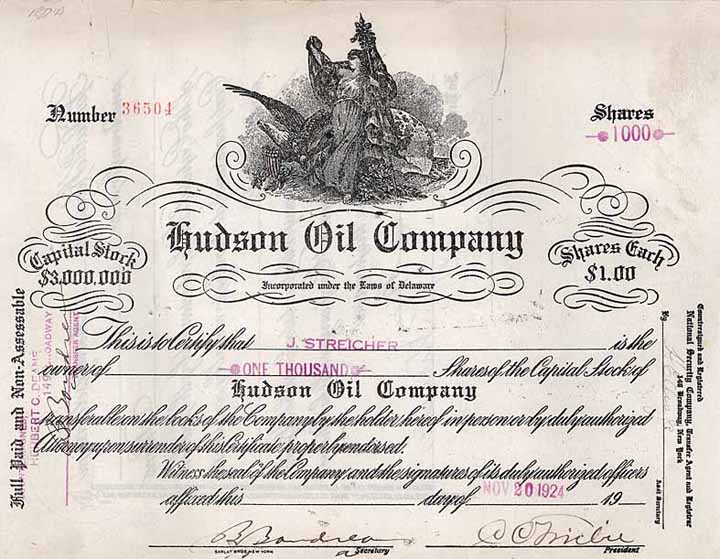 Number 36504
Shares
1000
Hudson Oil Company
Capital Stock
$3,000,000
Shares Each
$1.00
Incorporated under the Laws of Delaware
This is to Certify that J. STREICHER is the
owner of ONE THOUSAND Shares of the Capital Stock of
Hudson Oil Company
transferable on the books of the Company by the holder hereof in person or by duly authorized
Attorney upon surrender of this Certificate properly endorsed.
Witness the seal of the Company and the signatures of its duly authorized officers
affixed this day of NOV 20 1924 19
Secretary
President
Full Paid and Non-Assessable
HERBERT C.
BROADWAY
TRANSFER AGENT
Countersigned and Registered
National Security Company, Transfer Agent and Registrar
By
Asst Secretary